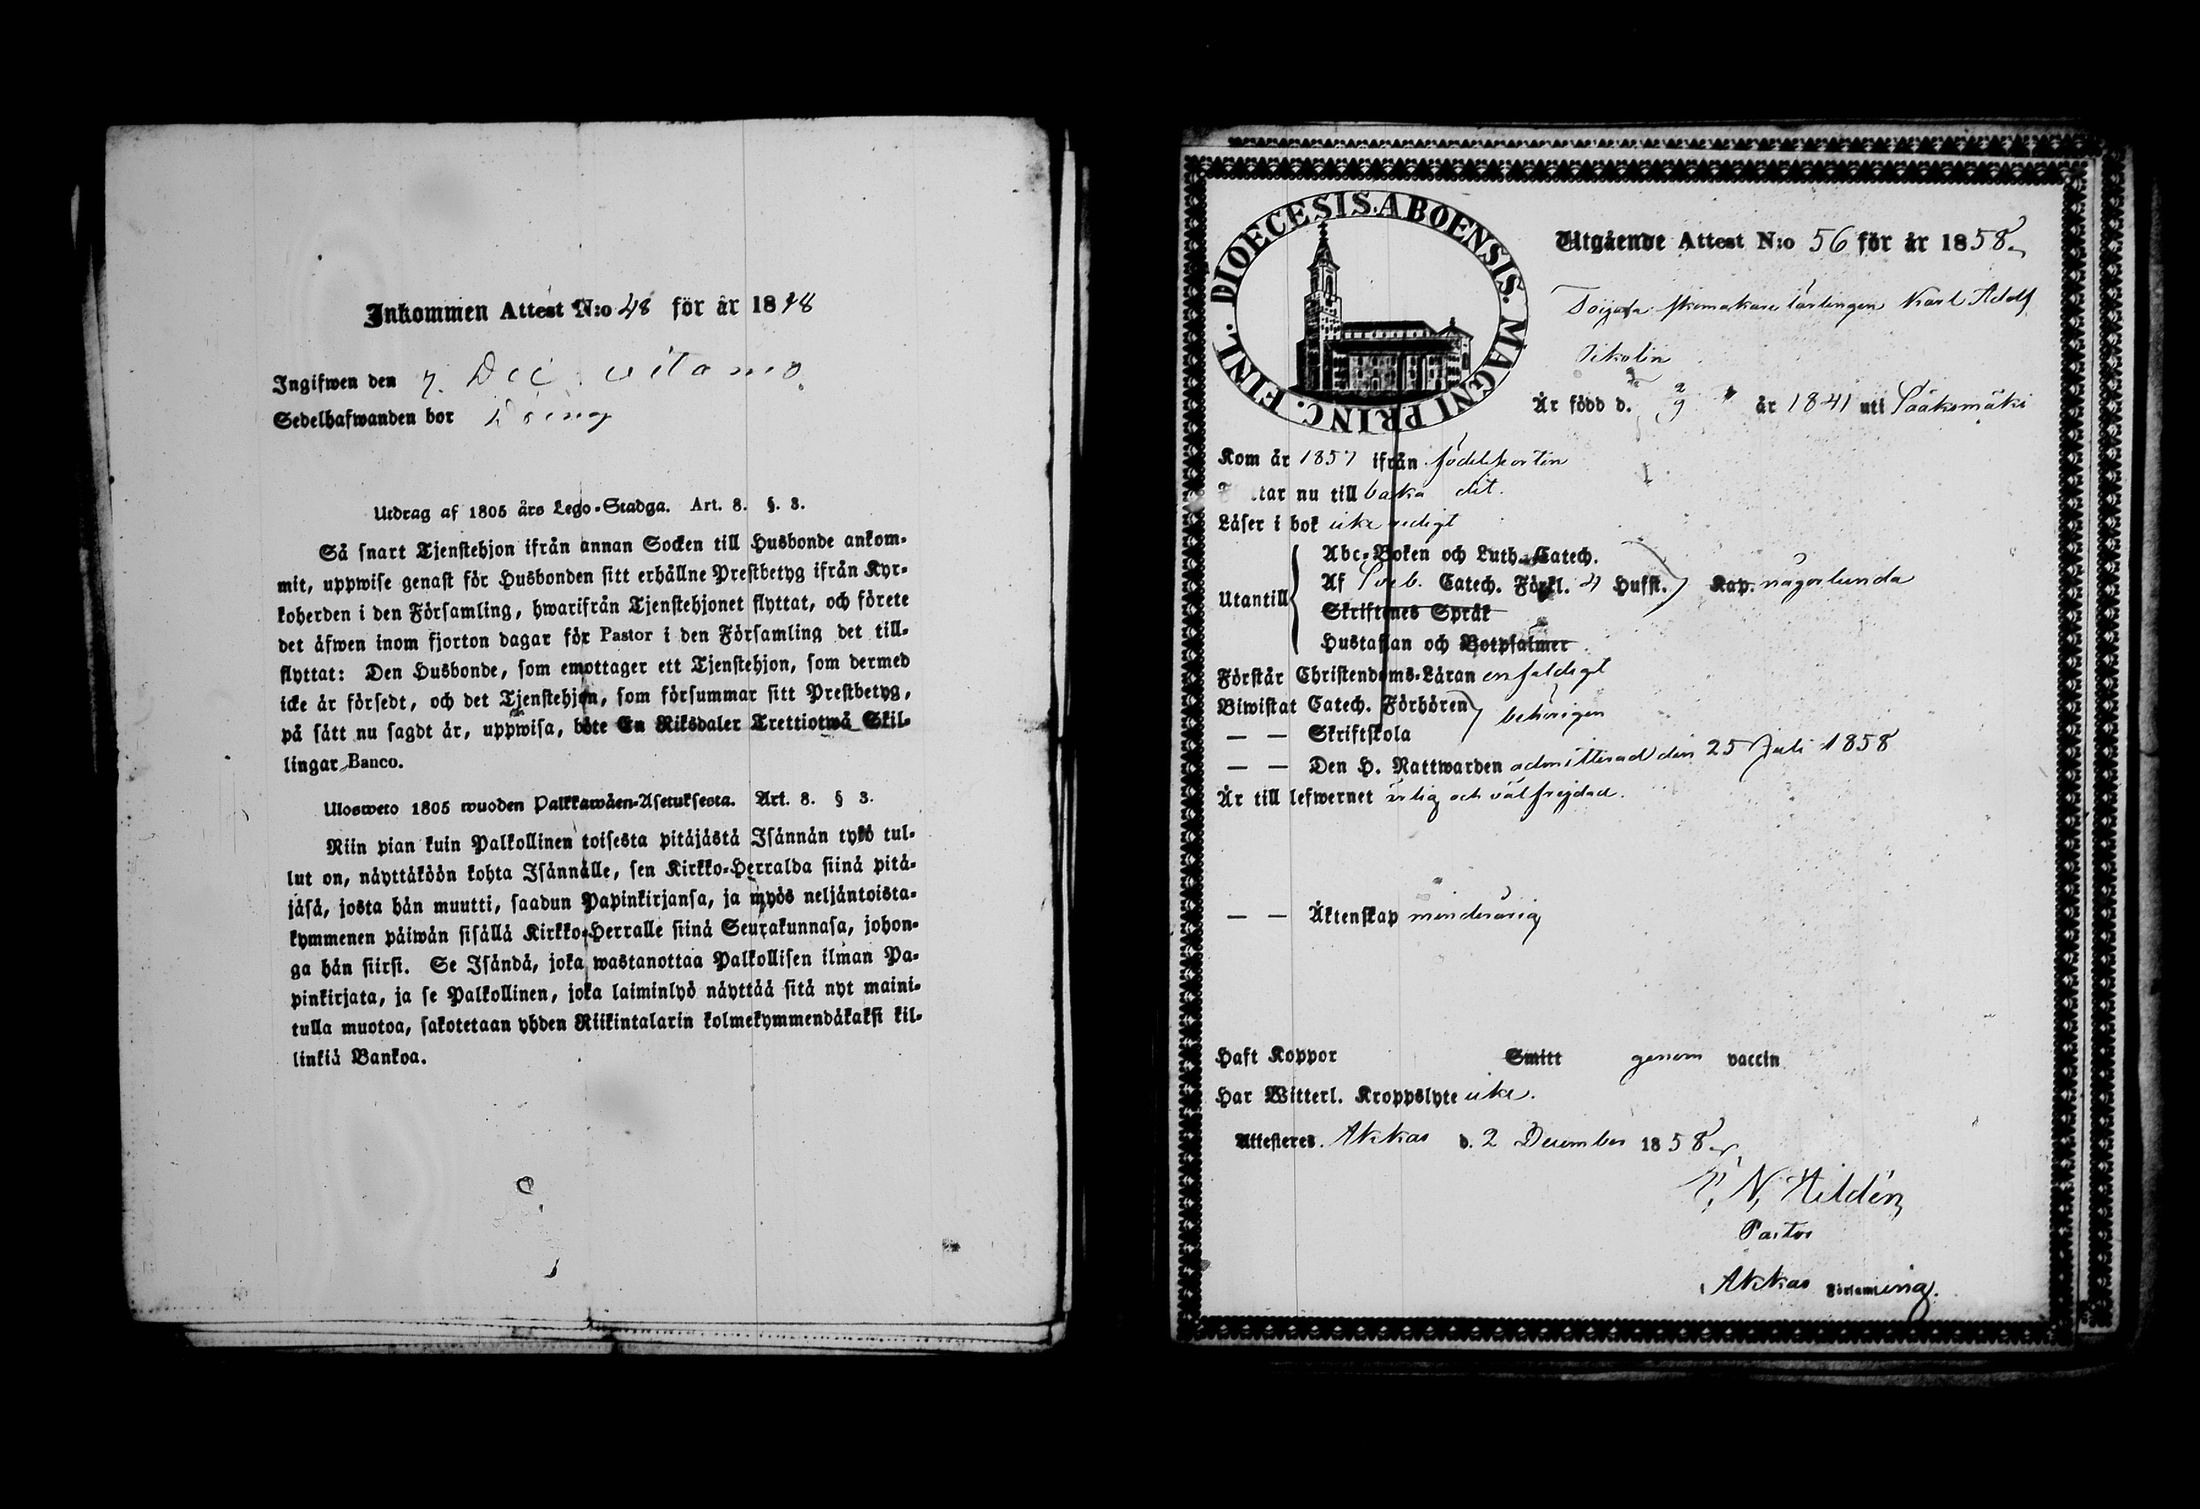 Inkommen Attest N:o 48 för år 1848
Ingifwen den 7. Dec.
Sedelhafwanden bor
Utdrag af 1805 års Lego-Stadga. Art. 8. §. 3.
Så snart Tjenstehjon ifrån annan Socken till Husbonde ankom-
mit, uppwise genast för Husbonden sitt erhållne Prestbetyg ifrån Kyr-
koherden i den Församling, hwarifrån Tjenstehjonet flyttat, och förete
det äfwen inom fjorton dagar för Pastor i den Församling det till-
flyttat: Den Husbonde, som emottager ett Tjenstehjon, som dermed
icke är försedt, och det Tjenstehjon, som försummar sitt Prestbetyg,
på sätt nu sagdt är, uppwisa, böte En Riksdaler Trettiotwå Skil-
lingar Banco.
Ulosweto 1805 wuoden Palkkawäen-Asetuksesta. Art. 8. § 3.
Niin pian kuin Palkollinen toisesta pitäjästä Isännän tykö tul-
lut on, näyttäköön kohta Isännälle, sen Kirkko-Herralda siinä pitä-
jäsä, josta hän muutti, saadun Papinkirjansa, ja myös neljäntoista-
kymmenen päiwän sisällä Kirkko-Herralle siinä Seurakunnasa, johon-
ga hän siirsi. Se Isändä, joka wastanottaa Palkollisen ilman Pa-
pinkirjata, ja se Palkollinen, joka laiminlyö näyttää sitä nyt maini-
tulla muotoa, sakotetaan yhden Riikintalarin kolmekymmendäkaksi kil-
linkiä Bankoa.
DIOECESIS. ABOENSIS. MAGNI PRINC. FINL.
Utgående Attest N:o 56 för år 1858
Toijala skomakare lärlingen Karl Adolf
Är född d. 9 år 1841 uti Sääksmäki
Kom år 1857 ifrån födelseorten
tar nu till baka dit.
Läser i bok icke redigt
Abc-Boken och Luth. Catech.
Utantill Af Sveb. Catech. Förkl. 4 Hufst. Kap. någorlunda
Skriftenes Språk
Hustaflan och Botpsalmer
Förstår Christendoms-Läran enfaldigt
Biwistat Catech. Förhören behörigen
— — Skriftskola
— — Den H. Nattwarden admitterad den 25 Juli 1858
Är till lefwernet ärlig och välfrejdad.
— — Äktenskap minderårig
Haft Koppor Smitt genom vaccin
Har Witterl. Kroppslyte icke.
Attesteres. Akkas d. 2 December 1858
N. Hildén
Pastor
Akkas Församling.